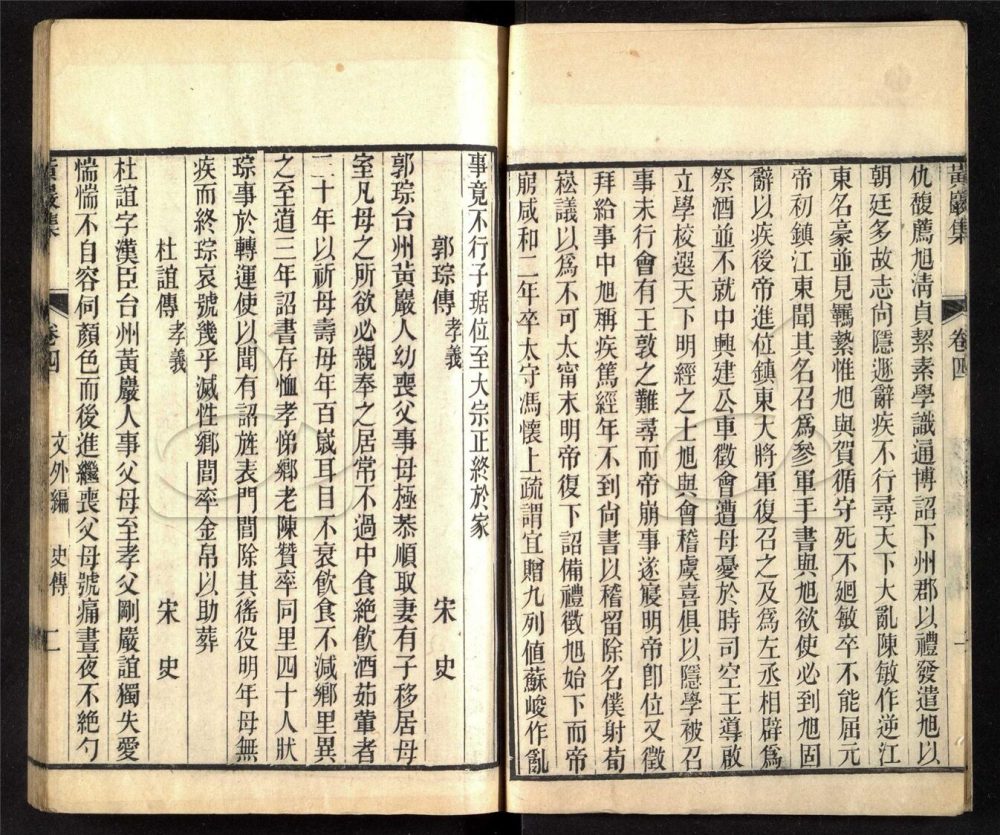 黃巖集 卷四 一
仇馥薦旭清貞絜素學識通博詔下州郡以禮發遣旭以
朝廷多故志尙隱遯辭疾不行尋天下大亂陳敏作逆江
東名豪並見羈縶惟旭與賀循守死不廻敏卒不能屈元
帝初鎭江東聞其名召爲參軍手書與旭欲使必到旭固
辭以疾後帝進位鎭東大將軍復召之及爲左丞相辟爲
祭酒並不就中興建公車徵會遭母憂於時司空王導啟
立學校選天下明經之士旭與會稽虞喜俱以隱學被召
事未行會有王敦之難尋而帝崩事遂寢明帝卽位又徵
拜給事中旭稱疾篤經年不到尙書以稽留除名僕射荀
崧議以爲不可太甯末明帝復下詔備禮徵旭始下而帝
崩咸和二年卒太守馮懷上疏謂宜贈九列値蘇峻作亂
事竟不行子琚位至大宗正終於家
郭琮傳 孝義 宋史
郭琮台州黃巖人幼喪父事母極恭順取妻有子移居母
室凡母之所欲必親奉之居常不過中食絶飮酒茹葷者
二十年以祈母壽母年百歲耳目不衰飮食不減鄉里異
之至道三年詔書存恤孝悌鄉老陳贊率同里四十人狀
琮事於轉運使以聞有詔旌表門閭除其徭役明年母無
疾而終琮哀號幾乎滅性鄉閭率金帛以助葬
杜誼傳 孝義 宋史
杜誼字漢臣台州黃巖人事父母至孝父剛嚴誼獨失愛
惴惴不自容伺顏色而後進繼喪父母號痛晝夜不絶勺
黃巖集 卷四 文外編 史傳 二